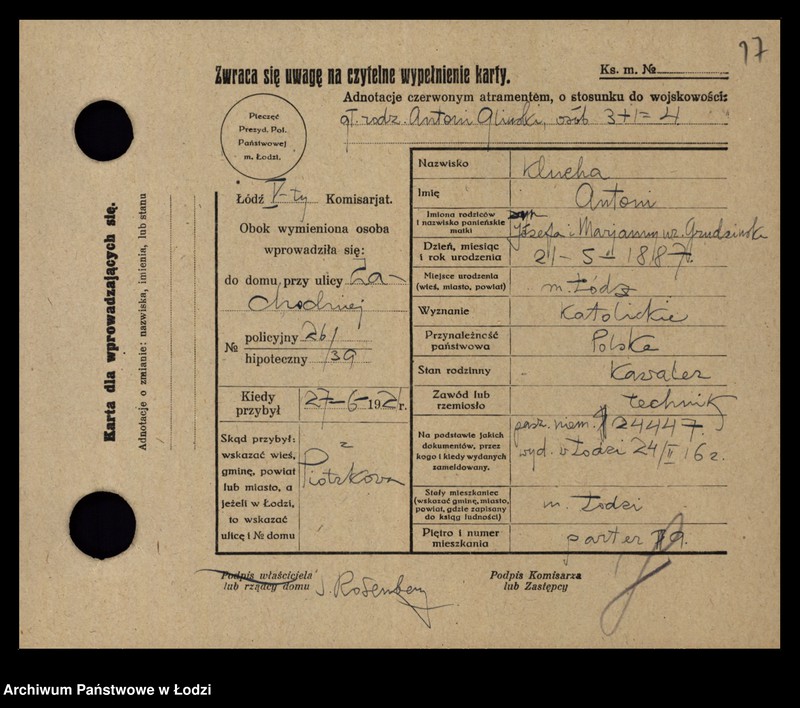 17
Zwraca się uwagę na czytelne wypełnienie karty.
Ks. m. №
Adnotacje czerwonym atramentem, o stosunku do wojskowości:
gł. rodz. Antoni Gliński, osób 3+1=4
Pieczęć
Prezyd. Pol.
Państwowej
m. Łodzi.
Karta dla wprowadzających się.
Adnotacje o zmianie: nazwiska, imienia, lub stanu
Łódź V-ty Komisarjat.
Obok wymieniona osoba
wprowadziła się:
do domu przy ulicy Za-
chodniej
№ policyjny 26/
hipoteczny /39
Kiedy przybył 27-6-1921 r.
Skąd przybył:
wskazać wieś,
gminę, powiat
lub miasto, a
jeżeli w Łodzi,
to wskazać
ulicę i № domu
z
Piotrkowa
Nazwisko Klucha
Imię Antoni
Imiona rodziców
i nazwisko panieńskie
matki
Józefa i Maryanny ur. Grudzińska
Dzień, miesiąc
i rok urodzenia
21-5-1887.
Miejsce urodzenia
(wieś, miasto, powiat)
m. Łódz
Wyznanie Katolickie
Przynależność
państwowa
Polska
Stan rodzinny Kawaler
Zawód lub
rzemiosło
technik
Na podstawie jakich
dokumentów, przez
kogo i kiedy wydanych
zameldowany.
pasz. niem. 24447.
wyd. w Łodzi 24/II 16 r.
Stały mieszkaniec
(wskazać gminę, miasto,
powiat, gdzie zapisany
do ksiąg ludności)
m. Łodzi
Piętro i numer
mieszkania
parter 9.
Podpis właściciela
lub rządcy domu
J. Rosenberg
Podpis Komisarza
lub Zastępcy
Archiwum Państwowe w Łodzi